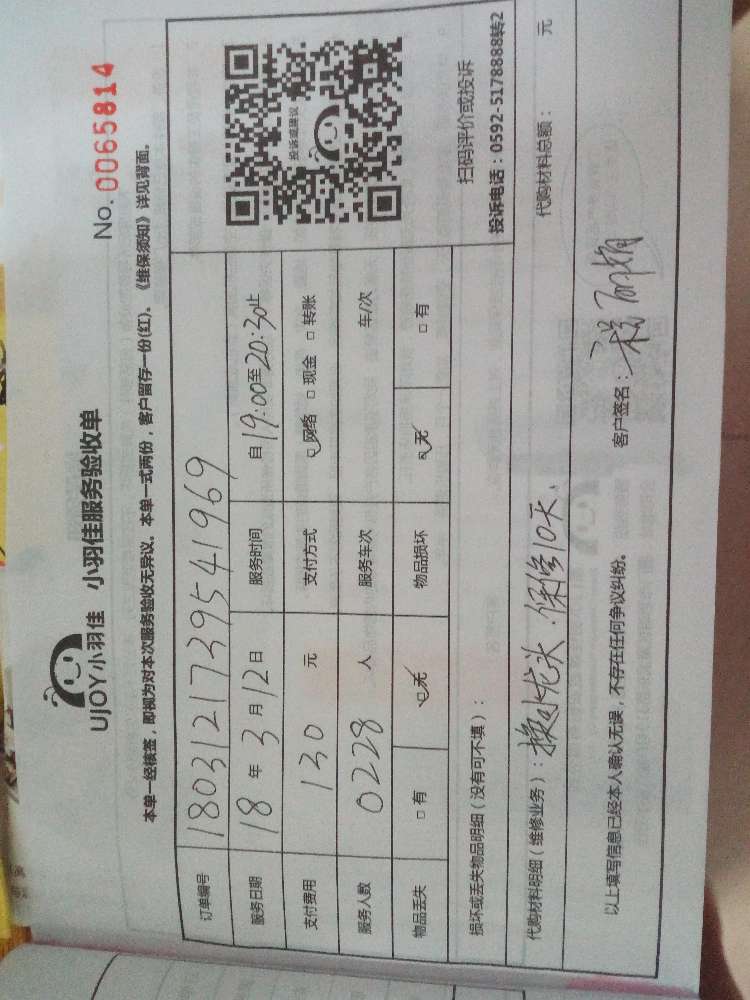 UJOY小羽佳 小羽佳服务验收单
No. 0065814
本单一经核签，即视为对本次服务验收无异议。本单一式两份，客户留存一份(红)。《维保须知》详见背面。
订单编号 1803121739541969
服务日期 18年3月12日 服务时间 自19:00至20:30止
支付费用 130元 支付方式 网络 □现金 □转账
服务人数 0228人 服务车次 车/次
物品丢失 □有 无 物品损坏 无 □有
投诉或建议
扫码评价或投诉
投诉电话：0592-5178888转2
损坏或丢失物品明细（没有可不填）：
代购材料明细（维修业务）：换水龙头.保修10天、 代购材料总额： 元
以上填写信息已经本人确认无误，不存在任何争议纠纷。 客户签名：